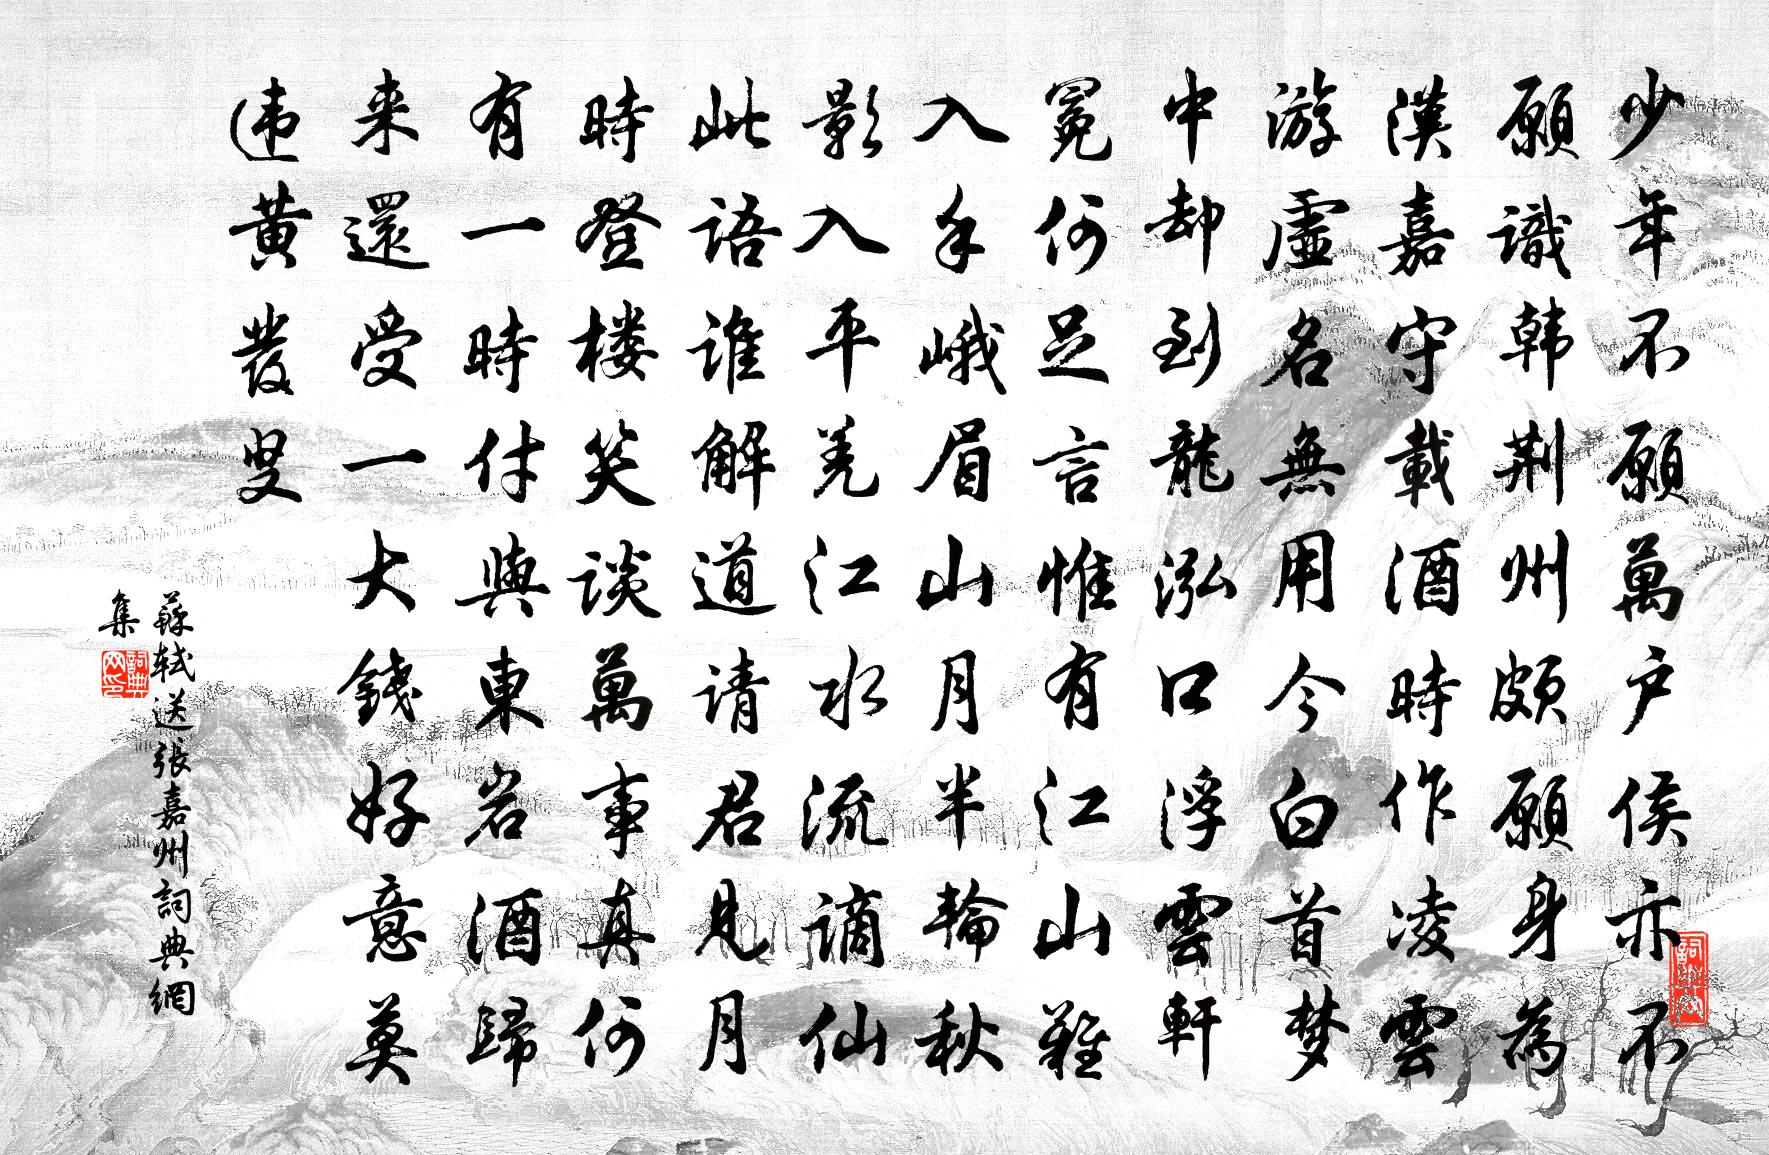 少年不願萬户侯亦不
願識韩荆州颇願身為
漢嘉守載酒時作凌雲
游虛名無用今白首梦
中却到龍泓口浮雲軒
冕何足言惟有江山難
入手峨眉山月半輪秋
影入平羌江水流謫仙
此語谁解道请君見月
時登楼笑谈萬事真何
有一時付與東岩酒歸
来還受一大錢好意莫
违黄發叟
蘇軾送張嘉州詞典網
集